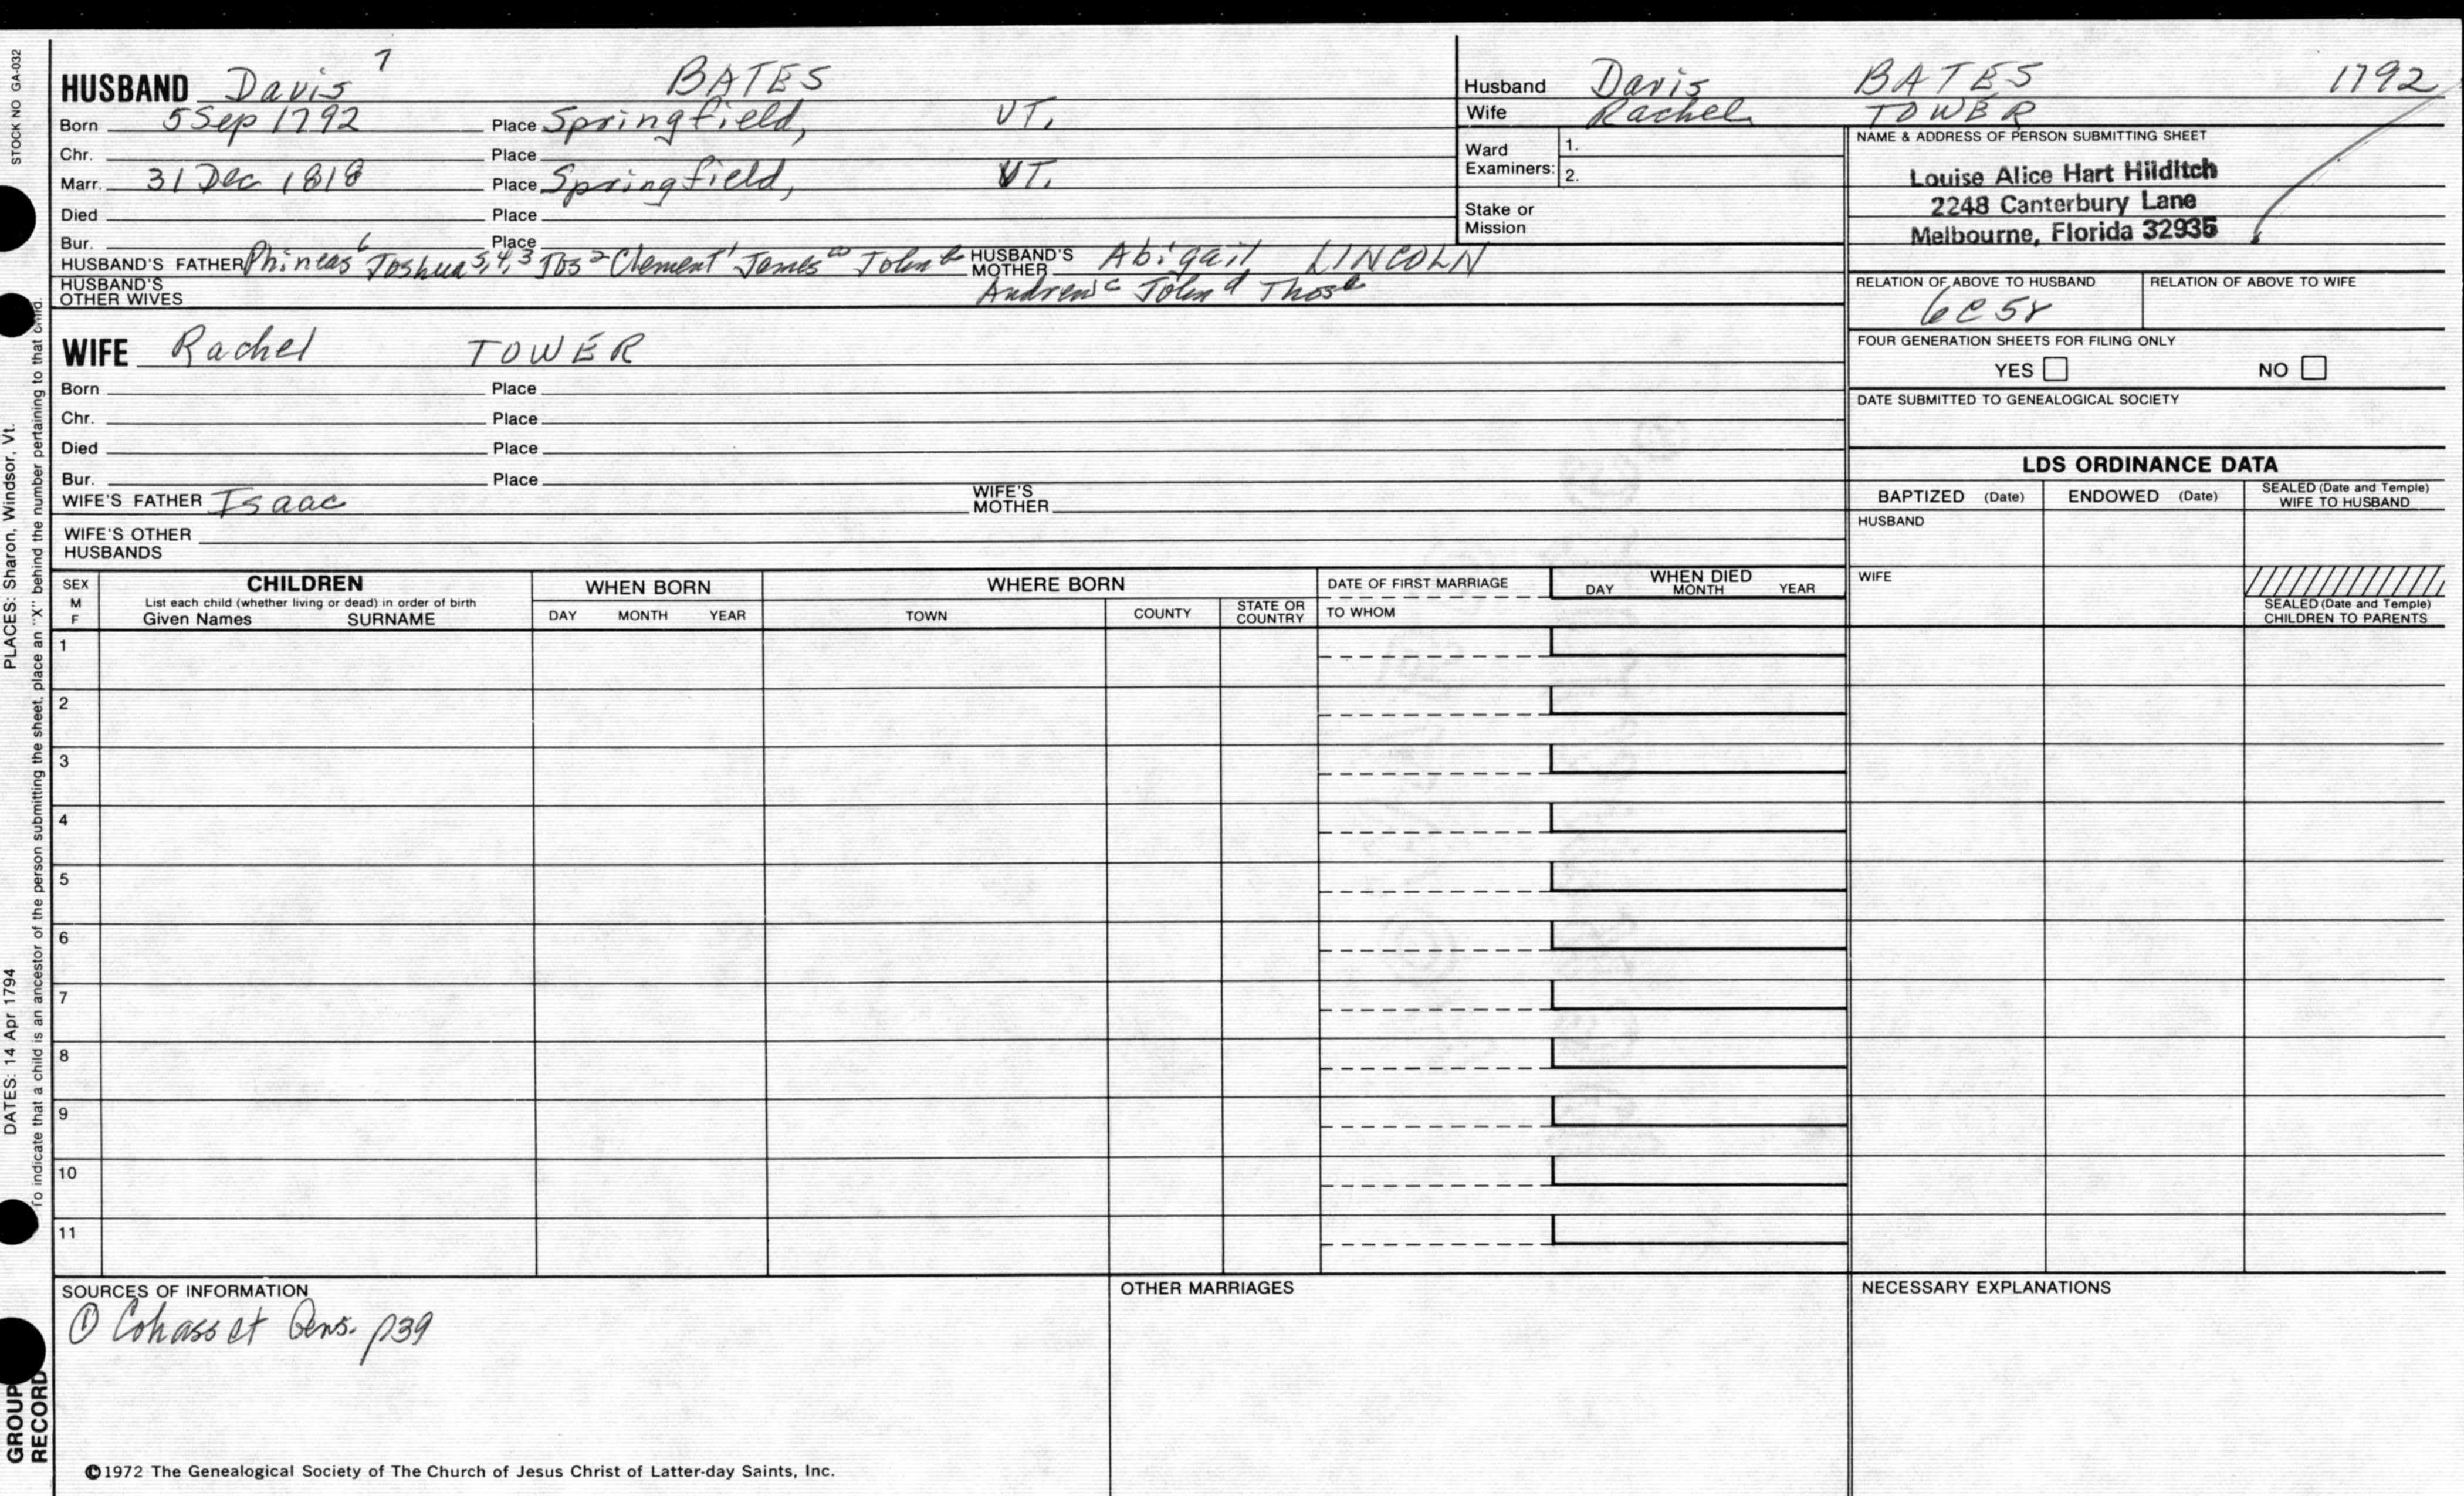 STOCK NO GA-032
PLACES: Sharon, Windsor, Vt.
DATES: 14 Apr 1794
To indicate that a child is an ancestor of the person submitting the sheet, place an "X" behind the number pertaining to that child.
GROUP
RECORD
HUSBAND Davis 7 BATES
Born 5 Sep 1792 Place Springfield, VT.
Chr. Place
Marr. 31 Dec 1818 Place Springfield, VT.
Died Place
Bur. Place
HUSBAND'S FATHER Phineas 6 Joshua 5,4,3 Jos 2 Clement 1 James a John b HUSBAND'S MOTHER Abigail LINCOLN
HUSBAND'S OTHER WIVES Andrew c John d Thos e
WIFE Rachel TOWER
Born Place
Chr. Place
Died Place
Bur. Place
WIFE'S FATHER Isaac WIFE'S MOTHER
WIFE'S OTHER HUSBANDS
Husband Davis BATES 1792
Wife Rachel TOWER
Ward Examiners: 1.
2.
Stake or Mission
NAME & ADDRESS OF PERSON SUBMITTING SHEET
Louise Alice Hart Hilditch
2248 Canterbury Lane
Melbourne, Florida 32935
RELATION OF ABOVE TO HUSBAND RELATION OF ABOVE TO WIFE
6C5r
FOUR GENERATION SHEETS FOR FILING ONLY
YES NO
DATE SUBMITTED TO GENEALOGICAL SOCIETY
LDS ORDINANCE DATA
BAPTIZED (Date) ENDOWED (Date) SEALED (Date and Temple) WIFE TO HUSBAND
HUSBAND
WIFE
SEALED (Date and Temple) CHILDREN TO PARENTS
SEX M F CHILDREN WHEN BORN WHERE BORN DATE OF FIRST MARRIAGE WHEN DIED
List each child (whether living or dead) in order of birth
Given Names SURNAME DAY MONTH YEAR TOWN COUNTY STATE OR COUNTRY TO WHOM DAY MONTH YEAR
1
2
3
4
5
6
7
8
9
10
11
SOURCES OF INFORMATION OTHER MARRIAGES NECESSARY EXPLANATIONS
① Cohasset Gens. p39
©1972 The Genealogical Society of The Church of Jesus Christ of Latter-day Saints, Inc.